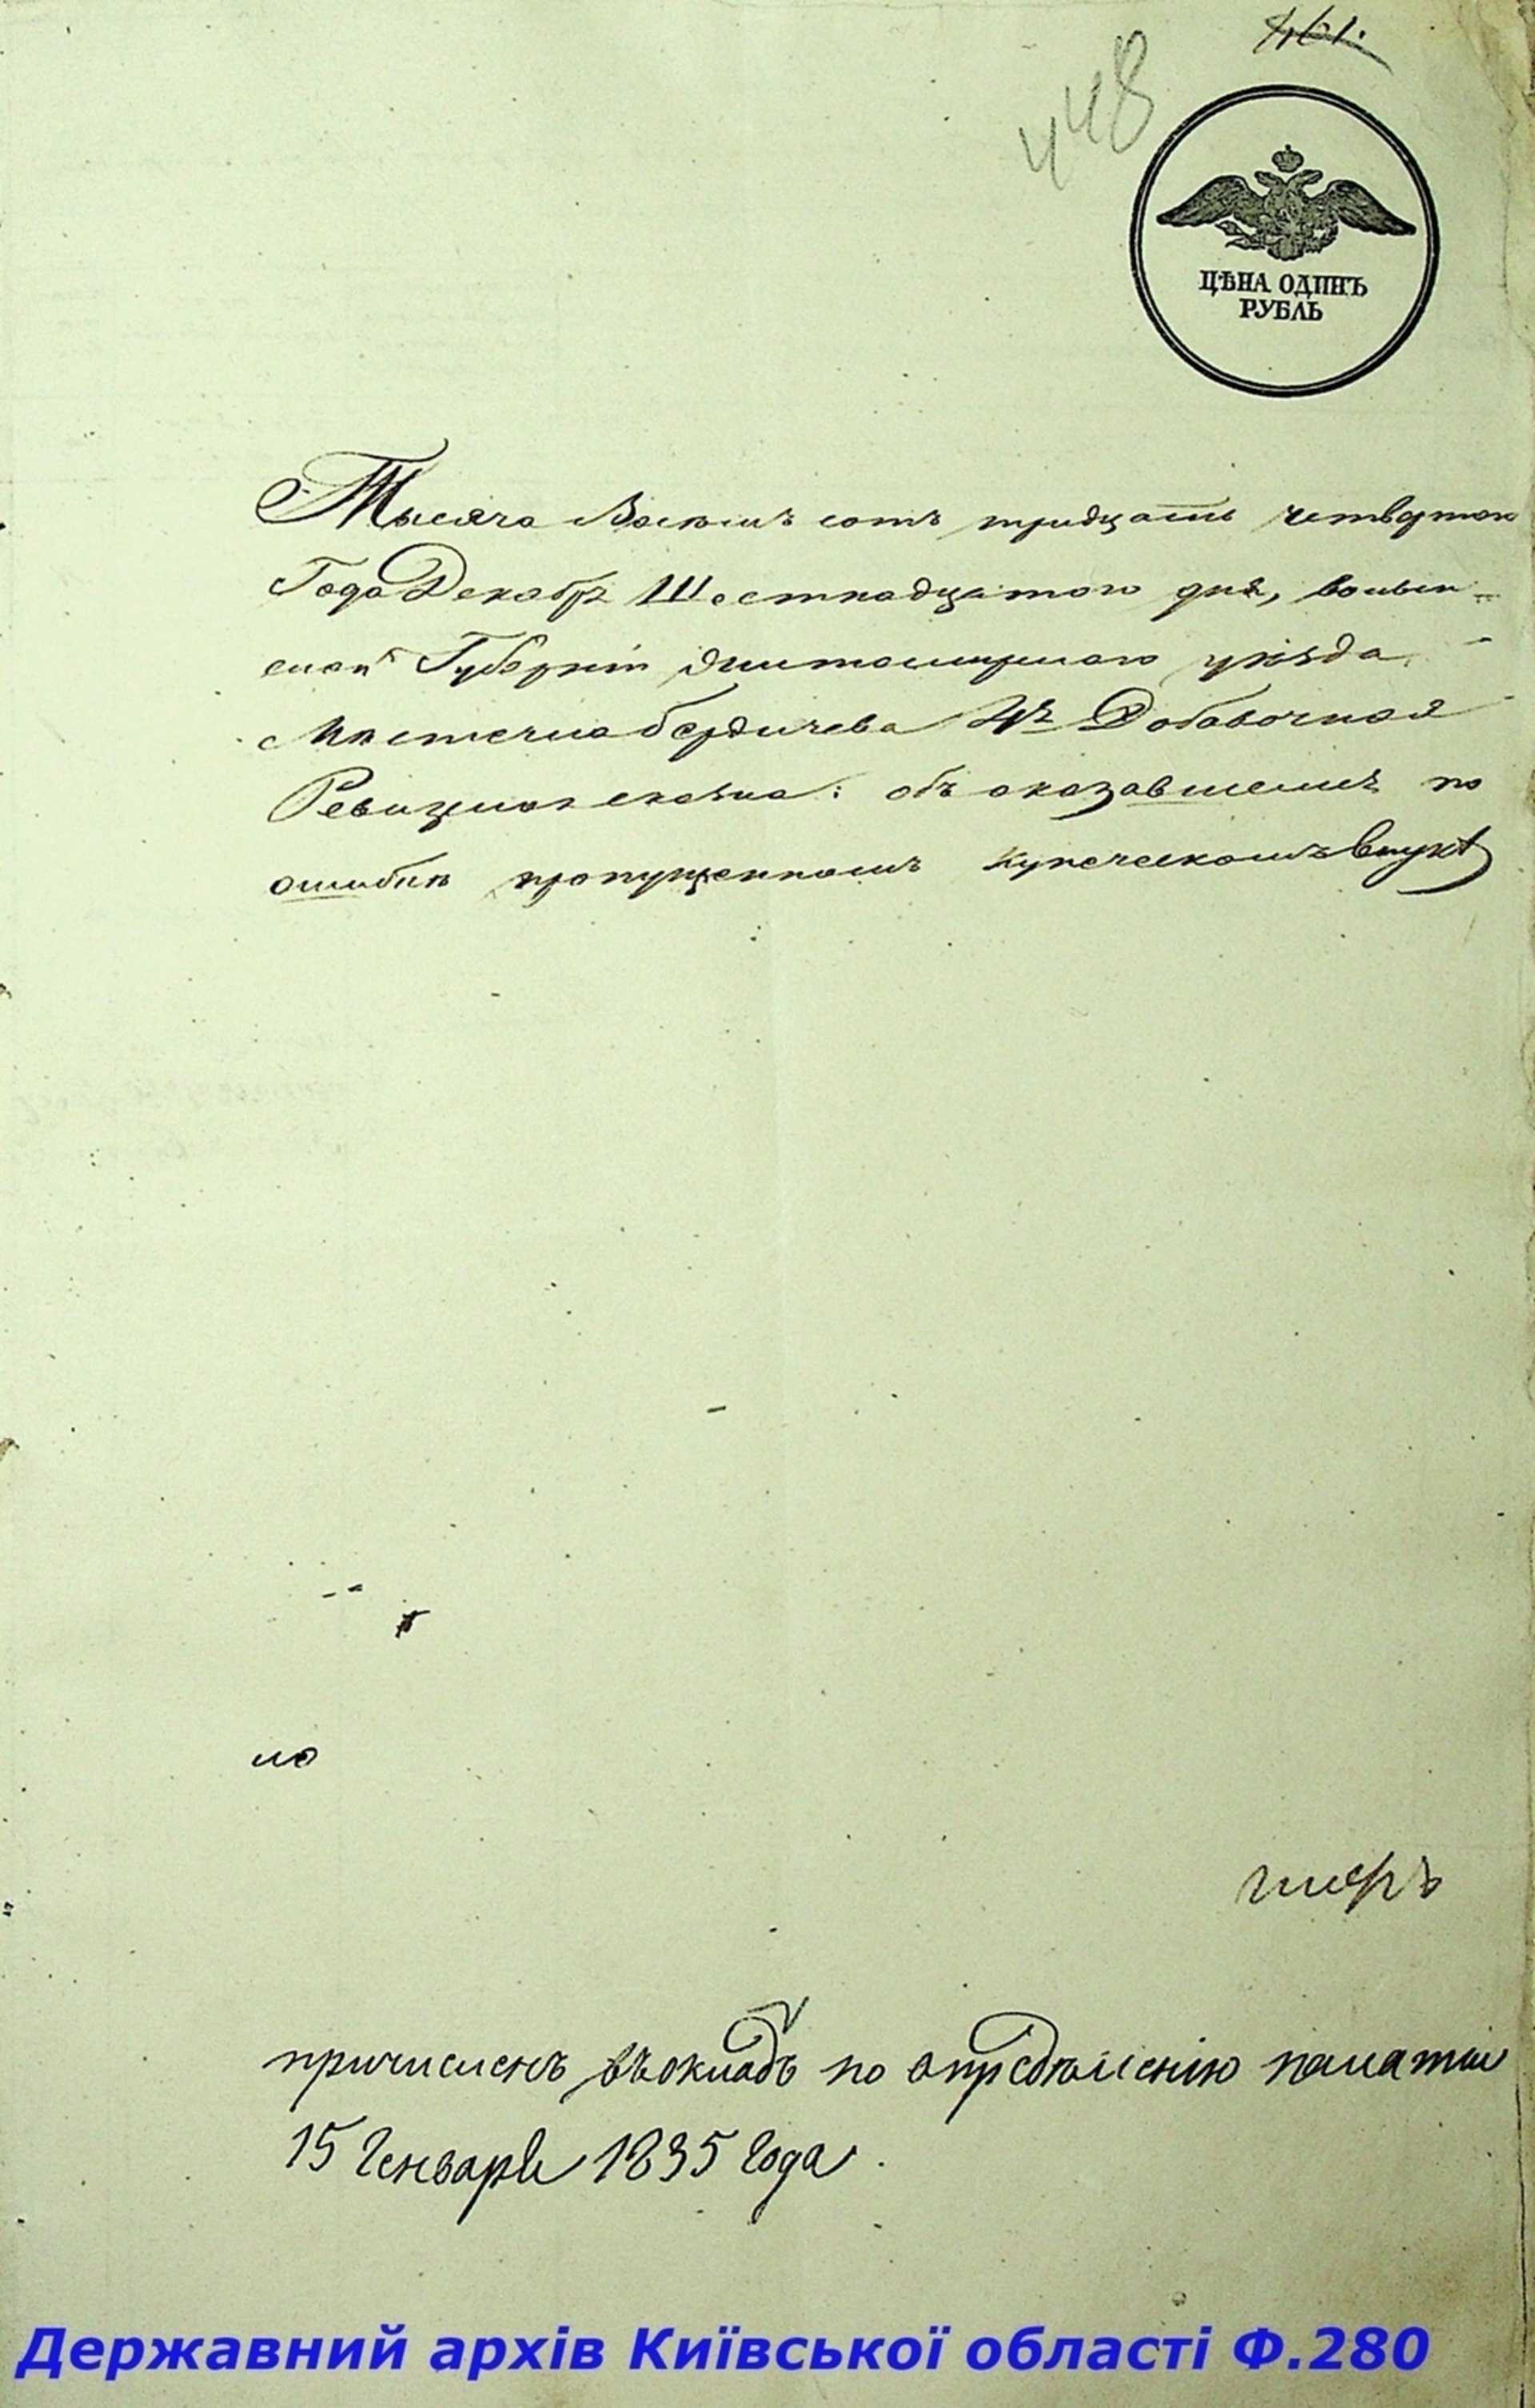 461.
448
ЦѢНА ОДИНЪ
РУБЛЬ
Тысяча Восемь сотъ тридцать четвертого
Года Декабр Шестнадцатого дня, волын-
ской Губерніи Житомирского уѣзда
Мѣстечка бердичева Добавочная
Ревизкая сказка: объ оказавшемся по
ошибкѣ пропущенномъ купеческомъ внукѣ
но
причисленъ въ окладъ по опредѣленію палаты
15 Генваря 1835 Года.
Державний архів Київської області Ф.280